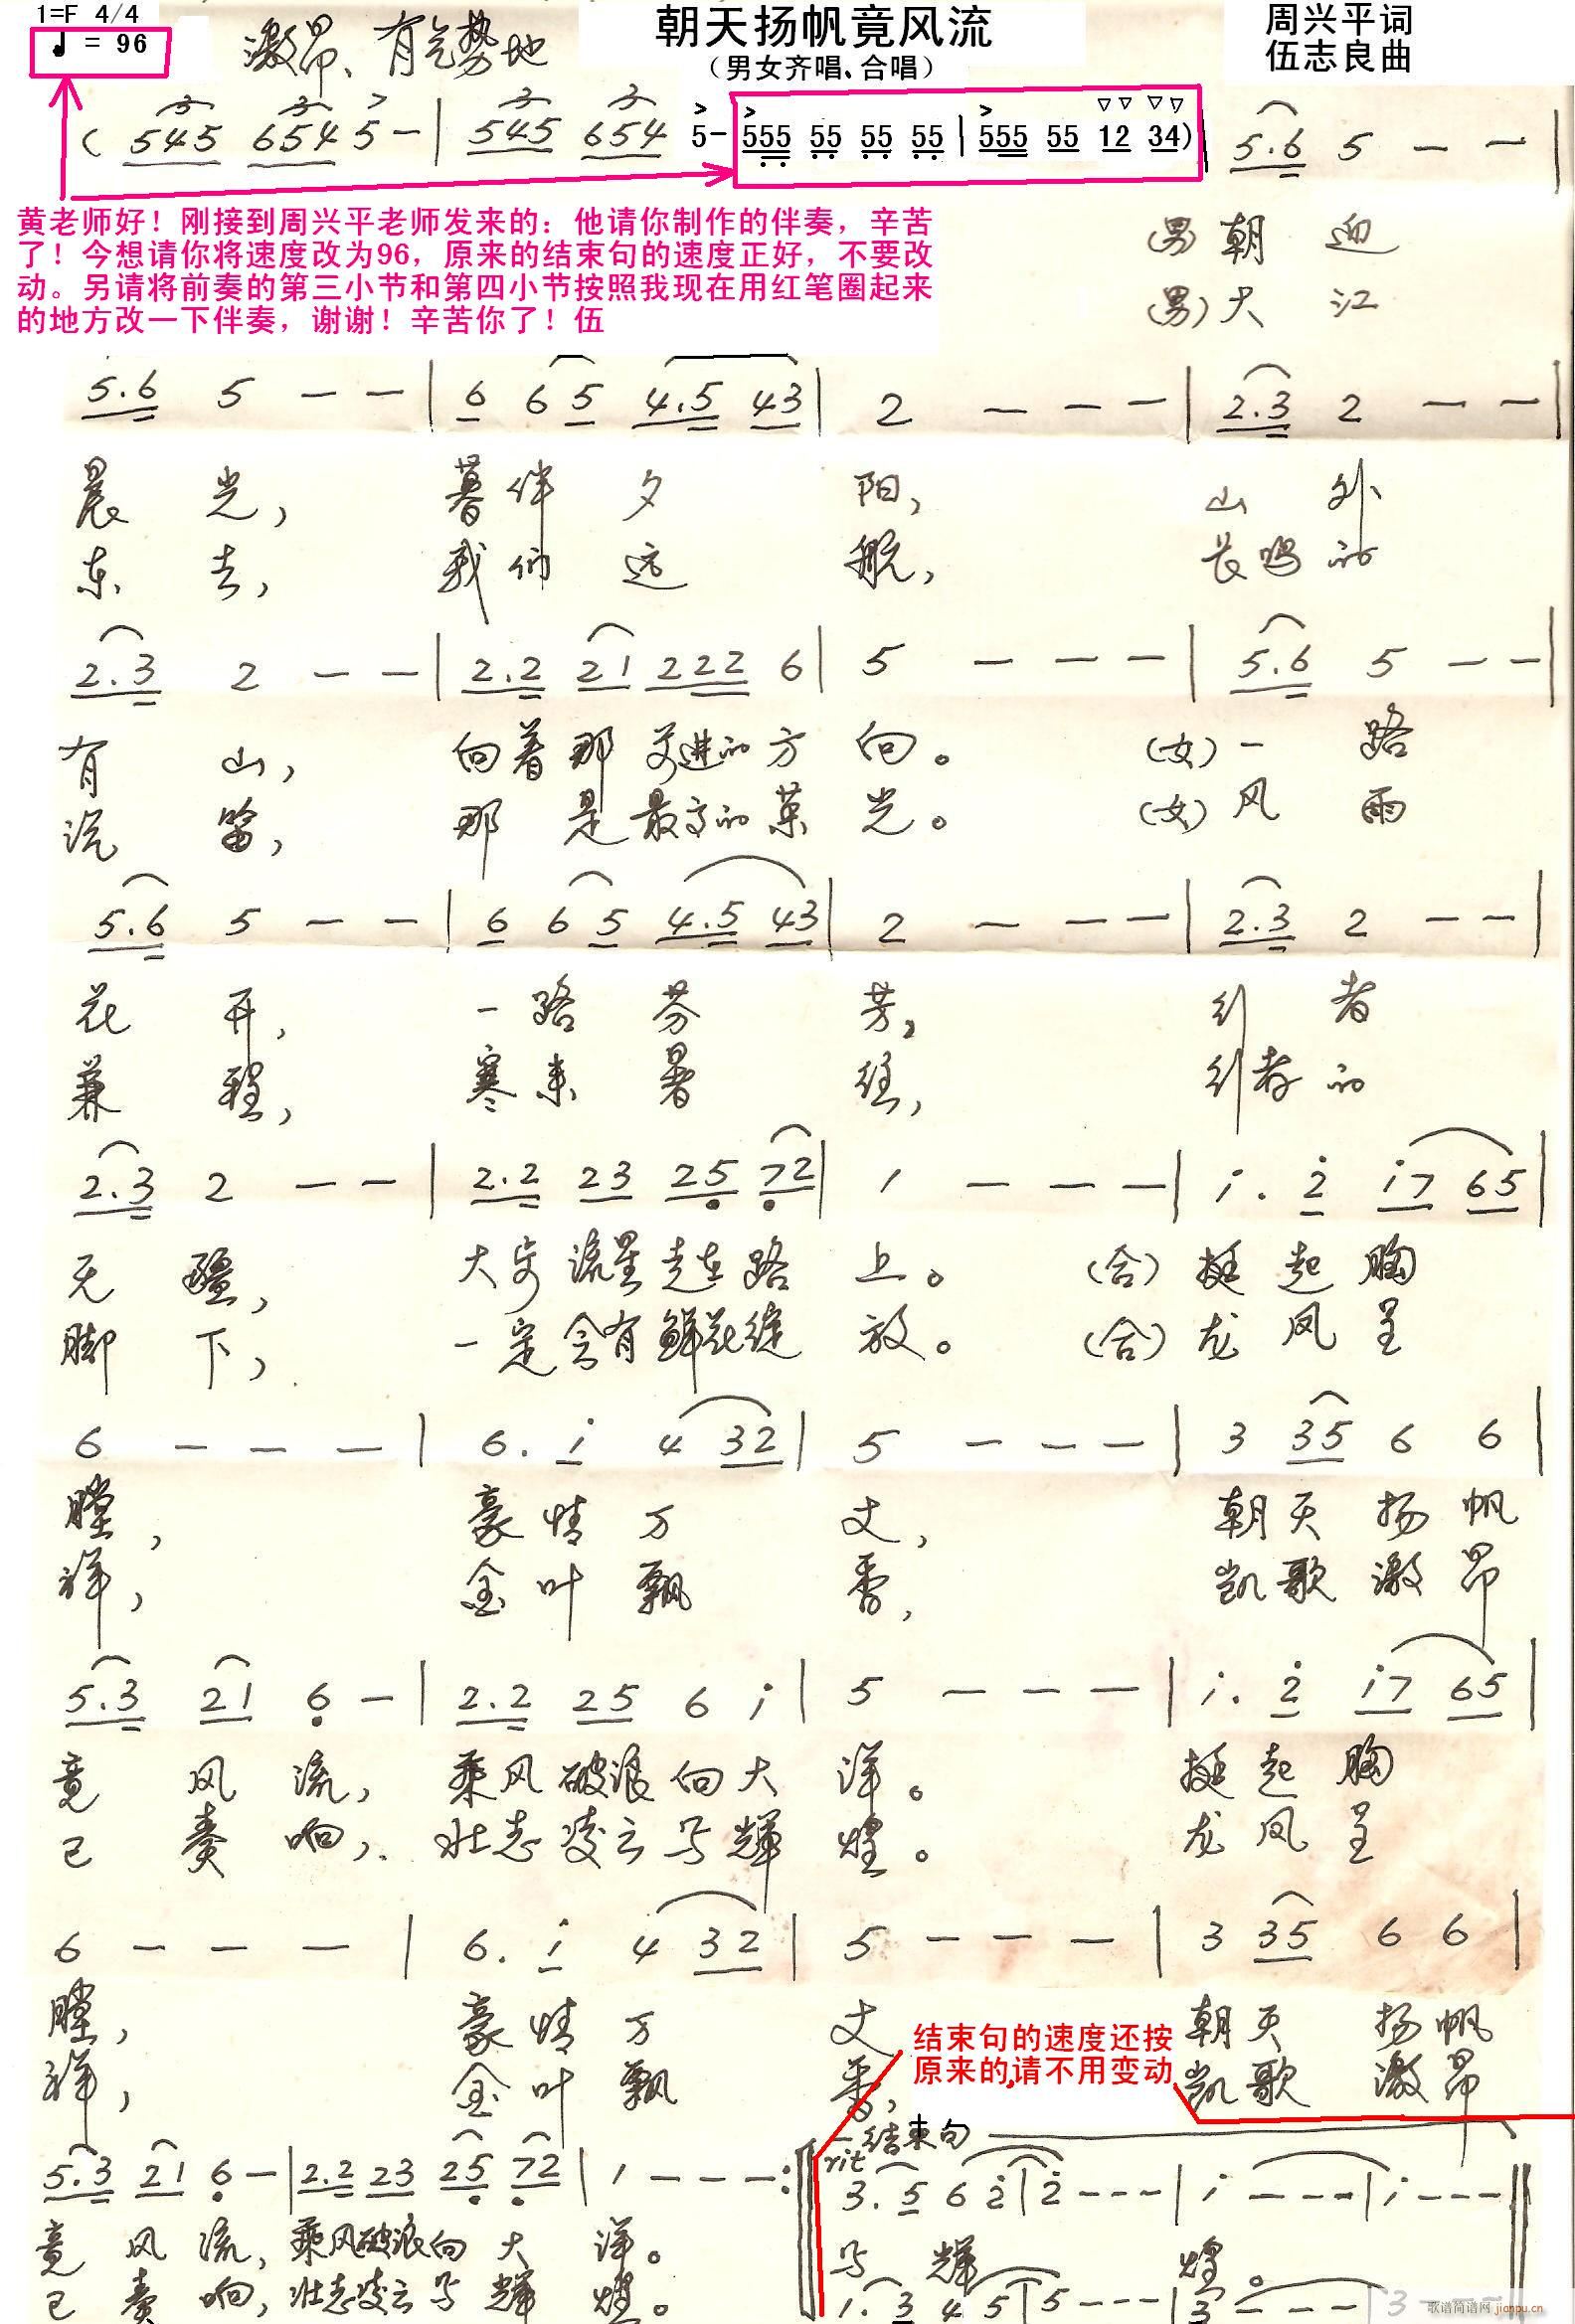 1=F 4/4
♩ = 96
激昂、有气势地
朝天扬帆竟风流
(男女齐唱、合唱)
周兴平词
伍志良曲
( 545 654 5 - | 545 654 5 - 555 55 55 55 | 555 55 12 34) | 5.6 5 - - |
黄老师好！刚接到周兴平老师发来的：他请你制作的伴奏，辛苦
了！今想请你将速度改为96，原来的结束句的速度正好，不要改
动。另请将前奏的第三小节和第四小节按照我现在用红笔圈起来
的地方改一下伴奏，谢谢！辛苦你了！伍
(男) 朝 迎
(男) 大 江
5.6 5 - - | 6 6 5 4.5 43 | 2 - - - | 2.3 2 - - |
晨 光， 暮 伴 夕 阳， 山 外
东 去， 我 们 远 航， 长鸣 的
2.3 2 - - | 2.2 21 222 6 | 5 - - - | 5.6 5 - - |
有 山， 向着那 前进的方 向。 (女) 一 路
汽 笛， 那 是 最高的 荣 光。 (女) 风 雨
5.6 5 - - | 6 6 5 4.5 43 | 2 - - - | 2.3 2 - - |
花 开， 一 路 芬 芳， 行 者
兼 程， 寒 来 暑 往， 行者 的
2.3 2 - - | 2.2 23 25 72 | 1 - - - | i. 2 i7 65 |
无 疆， 大步流星走在路 上。 (合) 挺 起 胸
脚 下， 一定会有鲜花绽 放。 (合) 龙 凤 呈
6 - - - | 6. i 4 32 | 5 - - - | 3 35 6 6 |
膛， 豪 情 万 丈， 朝 天 扬 帆
祥， 金 叶 飘 香， 凯 歌 激 昂
5.3 21 6 - | 2.2 25 6 i | 5 - - - | i. 2 i7 65 |
竟 风 流， 乘风破浪向大 洋。 挺 起 胸
已 奏 响， 壮志凌云写辉 煌。 龙 凤 呈
6 - - - | 6. i 4 32 | 5 - - - | 3 35 6 6 |
膛， 豪 情 万 丈 朝 天 扬 帆
祥， 金 叶 飘 香， 凯 歌 激 昂
结束句的速度还按
原来的,请不用变动
结束句
rit
5.3 21 6 - | 2.2 23 25 72 | 1 - - - :‖ 3. 5 6 2 | 2 - - - | i - - - | i - - - ‖
竟 风 流， 乘风破浪向 大 洋。 写 辉 煌。
已 奏 响， 壮志凌云写 辉 煌。 1. 3 4 5 | 5 - - - | 3 - - - | 3 - - -
歌谱简谱网 jianpu.cn